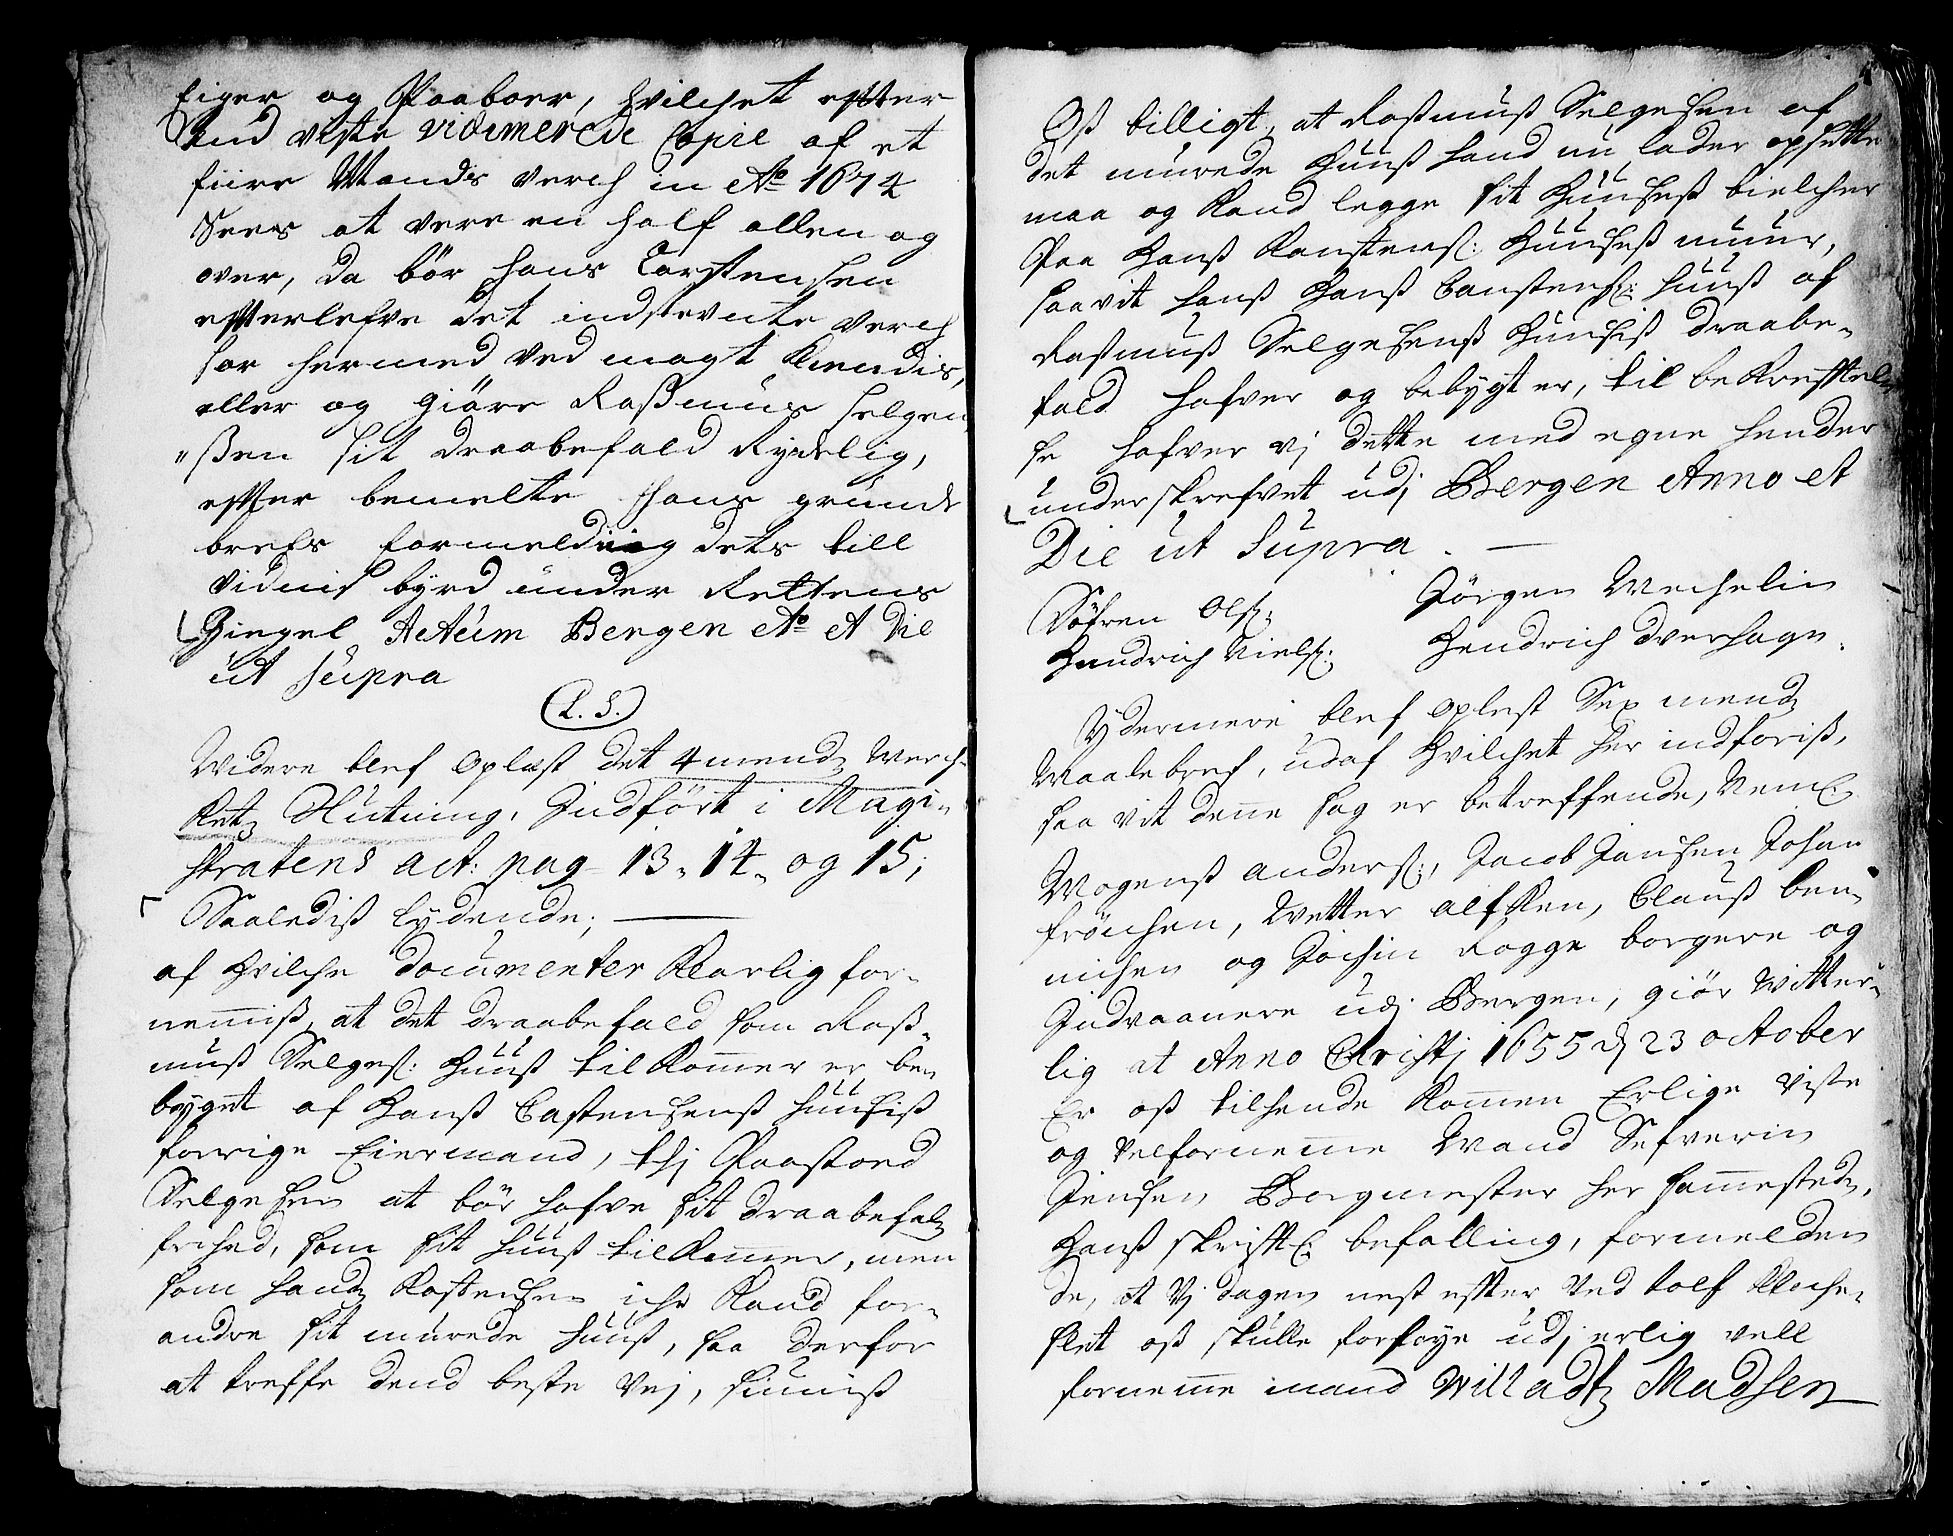 Eiger og Paaboer, hvilchet efter
dend viste vidimerede Copie af et
fiire Mands verch in Ao 1674
Sees at vere en half allen og
over, da bör hans Carstensen
efterlefve det indstevnte verch
som hermed ved magt kiendis,
eller og giöre Rasmus helgen
"ßen sit draabefald Rydelig,
efter bemelte hans grunde
brefs formelding dets till
vidnis byrd under Rettens
Zingel Actum Bergen Ao et Die
ut supra
(L. S.)
Widere blef oplæst det 4 mends werch-
Rets Slutning, Indfört i Magi-
stratens act: pag 13. 14. og 15;
Saaledis lydende;
af hvilche documenter klarlig for-
nemmis, at det draabefald som Raß-
mus Selges: huus tilkommer er be-
bygt af Hans Castensens huusis
forrige Eiermand, thj Paastoed
Selgesen at bör hafve sit draabefals
frihed, som sit huus tilkommer, men
som hands Kastensen iche kand for-
andre sit murede huus, saa derfor
at treffe dend beste vej, siunis
Oß billigt, at Rasmus Selgesen af
det murede huus hand nu lader opsette
maa og kand legge sit huuses bielcher
Paa Hans Karstens: huuses muur,
saavit hans Hans Canstens: huus af
Rasmus Selgesens huusis draabe-
fald hafver og bebygt er, til bekreftel-
se hafver vj dette med egne hender
underskrefvet udj Bergen Anno et
Die ut supra.
Söfren Ols: Jörgen Mechelin
Hendrich Niels: Hendrich dverhage.
Ydermere blef oplest Sex mends
Maale bref, udaf hvilchet her indföris,
saa vit denne sag er betreffende, Neml:
Mogens Anders:, Jacob Jansen Johan
fröchen, Wetter Alfken, Claus ben-
nichen og Jochim Rogge borgere og
Indvaanere udj Bergen, giör witter-
lig at Anno Christj 1655 d 23 october
Er oß tilhende kommen Erlige viise
og velfornemme Mand Sefverin
Jensen Borgmester her sammesteds,
Hans skriftl: befalling, formelden
de, at vj dagen nest efter ved tolf kloche-
slet oß skulle forföye udj erlig vell
fornemme mand Willadtz Madsen